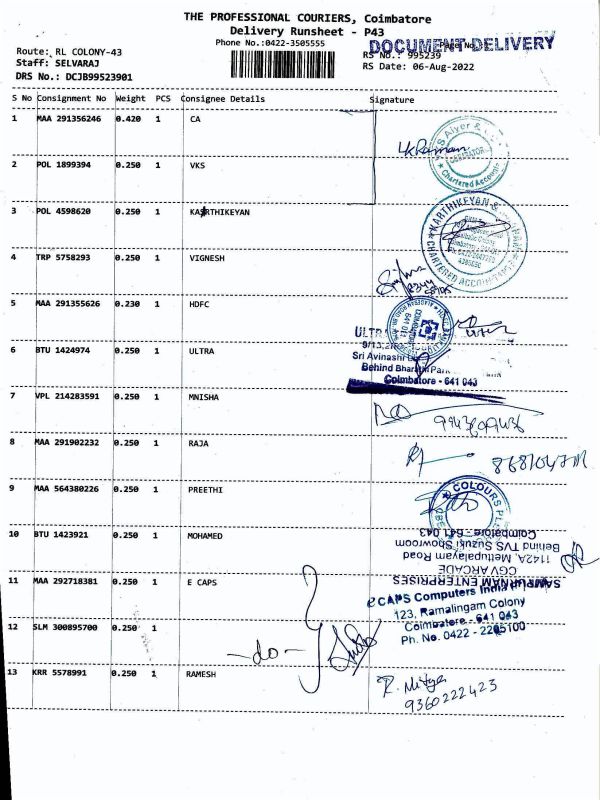 THE PROFESSIONAL COURIERS, Coimbatore
Delivery Runsheet - P43
Phone No.:0422-3505555
DOCUMENT DELIVERY
Route: RL COLONY-43
RS No.: 995239
Staff: SELVARAJ
RS Date: 06-Aug-2022
DRS No.: DCJB99523901
S No Consignment No Weight PCS Consignee Details Signature
1 MAA 291356246 0.420 1 CA
Chartered Accounts
2 POL 1899394 0.250 1 VKS
3 POL 4598620 0.250 1 KARTHIKEYAN
KARTHIKEYAN &
CHARTERED ACCOUNTANTS
4 TRP 5758293 0.250 1 VIGNESH
5 MAA 291355626 0.230 1 HDFC
6 BTU 1424974 0.250 1 ULTRA
Sri Avinashi
Behind Bharathi Park
Coimbatore - 641 043
7 VPL 214283591 0.250 1 MNISHA
8 MAA 291902232 0.250 1 RAJA
9 MAA 564380226 0.250 1 PREETHI
COLOURS
10 BTU 1423921 0.250 1 MOHAMED
Coimbatore - 641 043
Behind TVS Suzuki Showroom
1142A, Mettupalayam Road
CGV ARCADE
SAMPURNAM ENTERPRISES
11 MAA 292718381 0.250 1 E CAPS
e CAPS Computers India
123, Ramalingam Colony
Coimbatore - 641 043
Ph. No. 0422 - 2265100
12 SLM 300895700 0.250 1
-do-
13 KRR 5578991 0.250 1 RAMESH
R. Nitya
9360222423